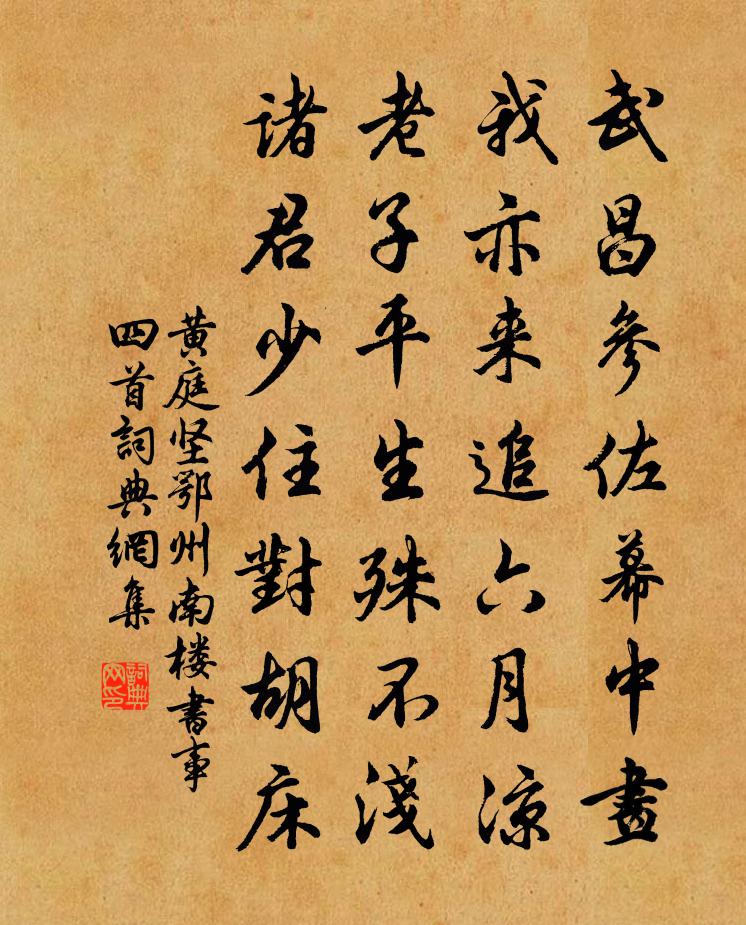 武昌參佐幕中畫
我亦来追六月凉
老子平生殊不淺
诸君少住對胡床
黄庭坚鄂州南楼書事
四首詞典網集
詞典网印